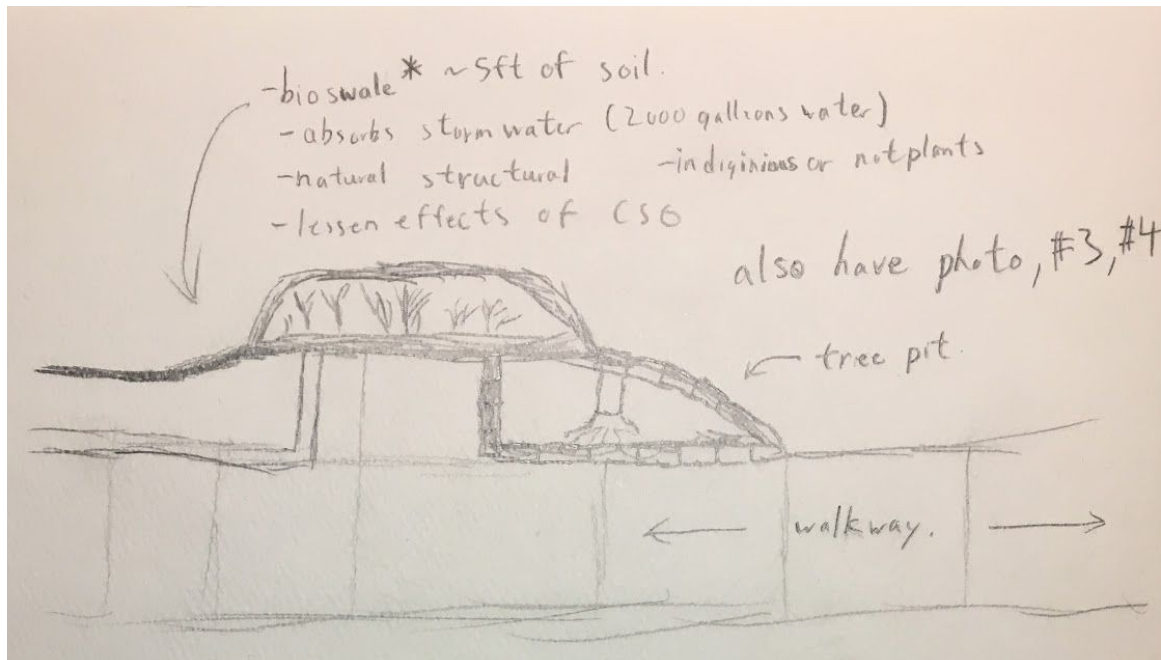 -bioswale* ~5ft of soil.
-absorbs stormwater (2000 gallions water)
-natural structural -indiginious or not plants
-lessen effects of CSO
also have photo, #3, #4
tree pit
walkway.